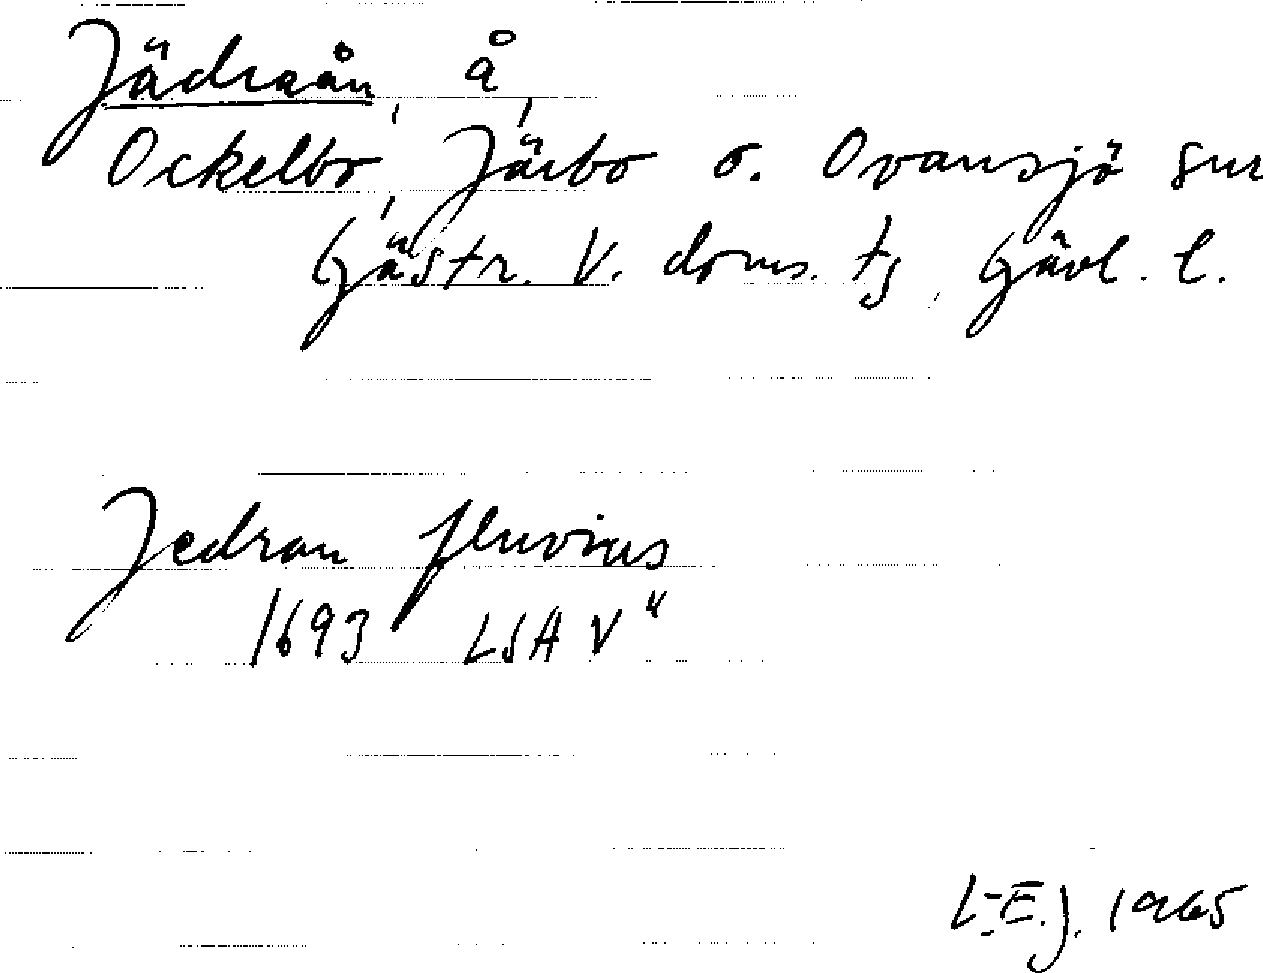 Jädraån, å,
Ockelbo, Järbo o. Ovansjö snr
Gästr. V. doms. tg, Gävl. l.
Jedran fluvius
1693 LSA V"
L-E. J. 1965